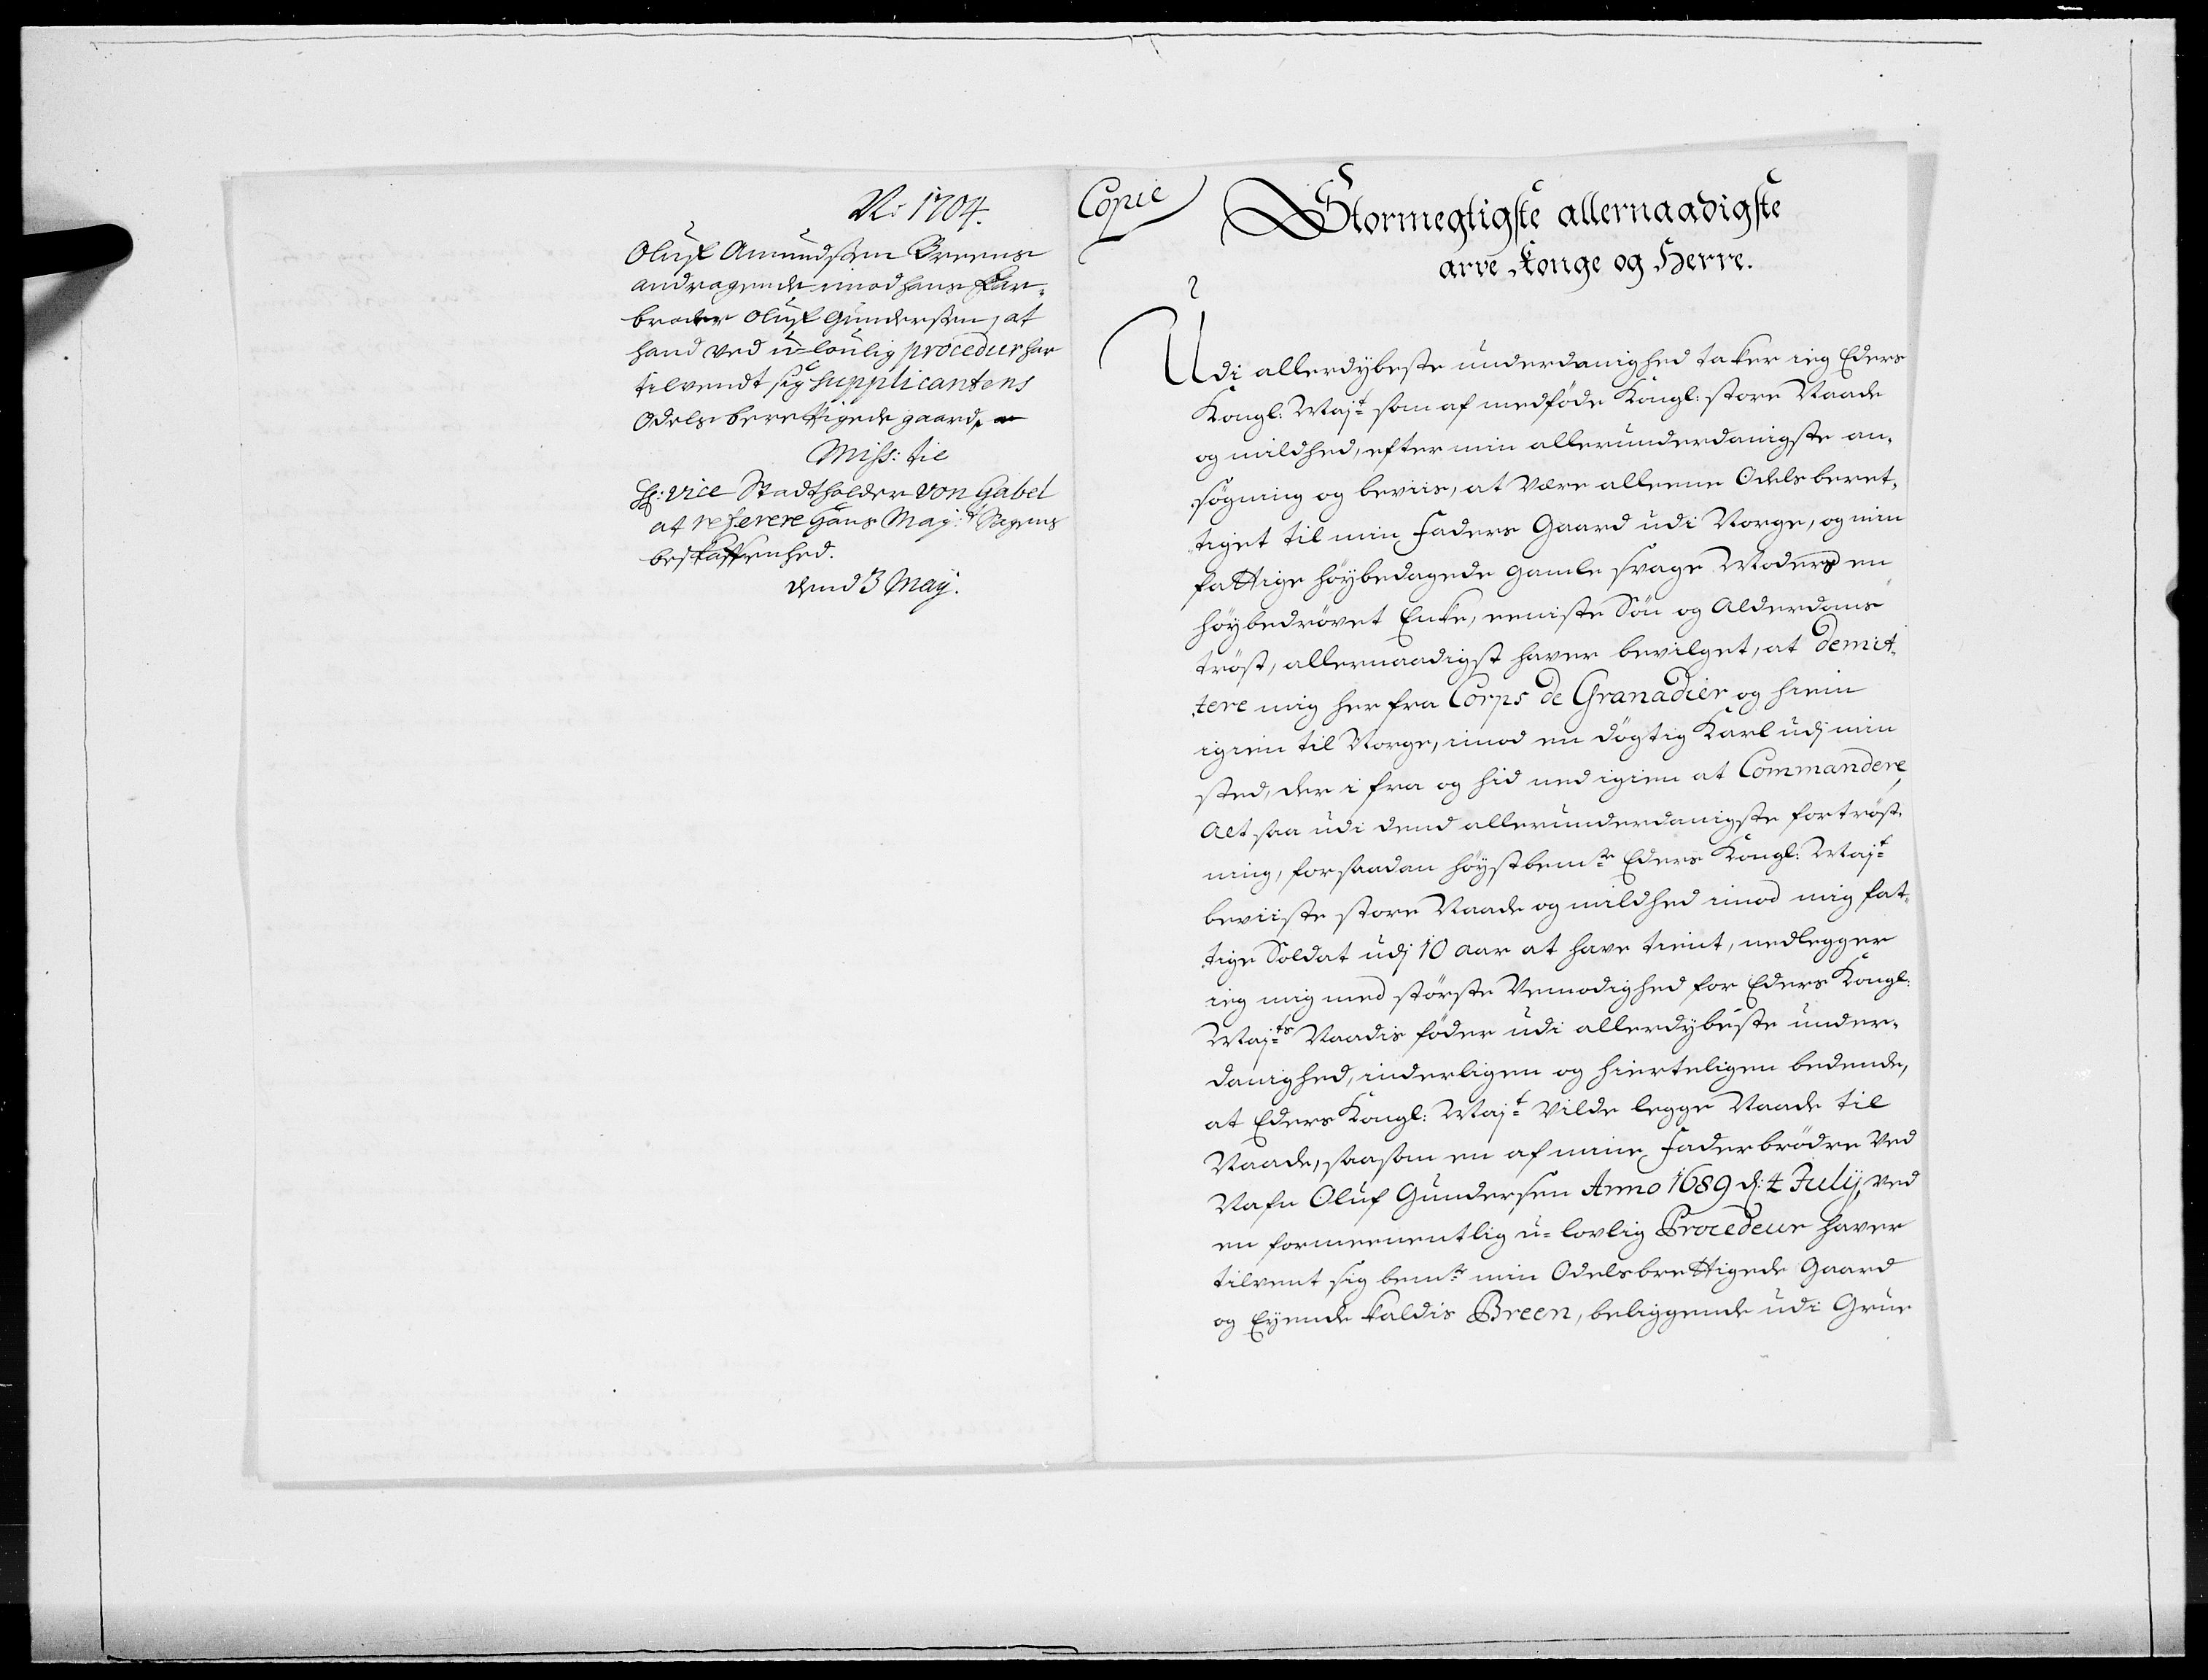 No 1704.
Oluf Amundsøn Breens
andragende imod hans Far-
broder Oluf Gundersøn, at
hand ved u-loulig procedur har
tilvendt sig Supplicantens
Odels berettigede gaard,
Miss: til
H: vice Stadtholder von Gabel
at referere Hans May:t Sagens
beskaffenhed.
dend 3 May.
Copie
Stormegtigste allernaadigste
arve Konge og Herre.
Udi allerdybeste underdanighed taker ieg Eders
Kongl: Majt som af medføde Kongl: store Naade
og mildhed, efter min allerunderdanigste an-
søgning og beviis, at være alleene Odels beret-
tiget til min Faders Gaard udi Norge, og min
fattige høybedagede gamle svage Moders en
høybedrøvet Enke, eeniste Søn og Alderdoms
trøst, allernaadigst haver bevilget, at demit-
tere mig her fra Corps de Granadier og hiem
igien til Norge, imod en døgtig Karl udj min
sted, der i fra og hid ned igien at Commandere,
Alt saa udi dend allerunderdanigste fortrøst-
ning, for saadan høystbemte Eders Kongl: Majt
beviiste store Naade og mildhed imod mig fat-
tige Soldat udj 10 aar at have tient, nedlegger
ieg mig med største Vemodighed for Eders Kongl:
Majts Naadis føder udi allerdybeste under-
danighed, inderligen og hierteligen bedende,
at Eders Kongl: Majt vilde legge Naade til
Naade, saasom en af mine Faderbrødre ved
Nafn Oluf Gundersen Anno 1689 d: 4 Julij, ved
en formeenentlig u-lovlig Procedeur haver
tilvent sig bemte min Odelsbrettigede Gaard
og Eyende kaldis Breen, beliggende udi Grue